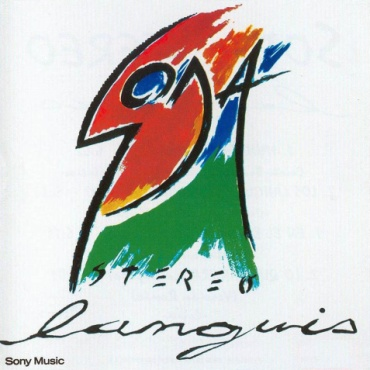 SODA
STEREO
languis
Sony Music